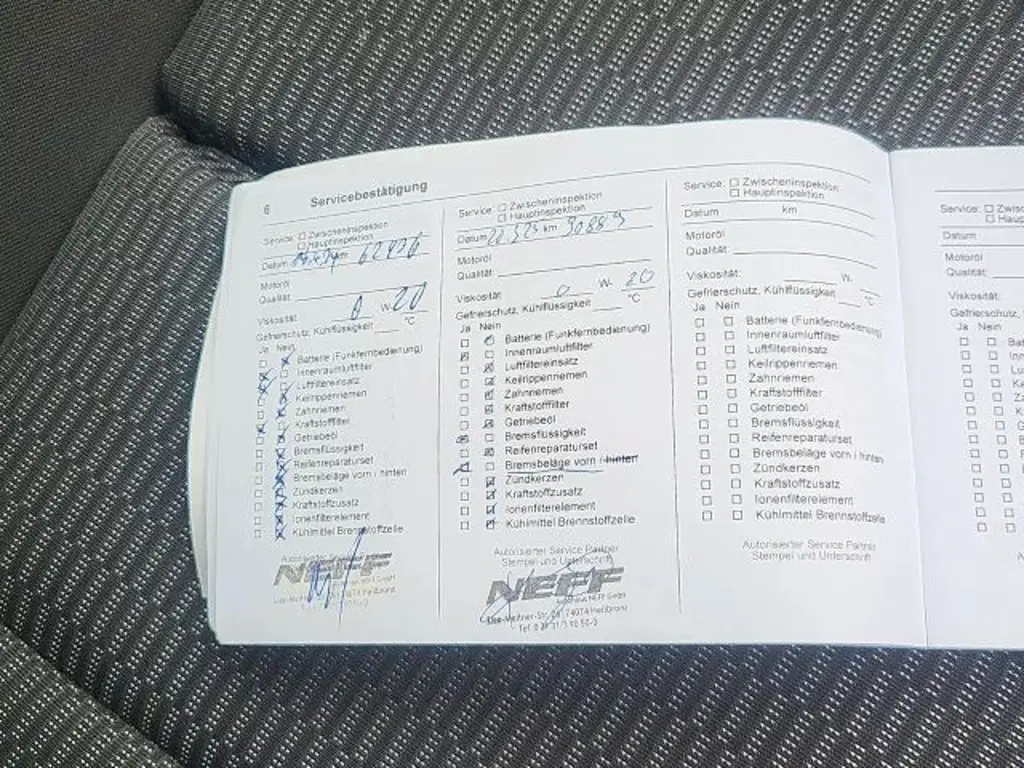 6 Servicebestätigung
Service: ☐ Zwischeninspektion
☐ Hauptinspektion
Datum km
Motoröl
Qualität:
Viskosität: 0 W- 20
Gefrierschutz, Kühlflüssigkeit °C
Ja Nein
Batterie (Funkfernbedienung)
Innenraumluftfilter
Luftfiltereinsatz
Keilrippenriemen
Zahnriemen
Kraftstofffilter
Getriebeöl
Bremsflüssigkeit
Reifenreparaturset
Bremsbeläge vorn / hinten
Zündkerzen
Kraftstoffzusatz
Ionenfilterelement
Kühlmittel Brennstoffzelle
Autorisierter Service
NEFF
74074 Heilbronn
Service: ☐ Zwischeninspektion
☐ Hauptinspektion
Datum km 30889
Motoröl
Qualität:
Viskosität: 0 W- 20
Gefrierschutz, Kühlflüssigkeit °C
Ja Nein
Batterie (Funkfernbedienung)
Innenraumluftfilter
Luftfiltereinsatz
Keilrippenriemen
Zahnriemen
Kraftstofffilter
Getriebeöl
Bremsflüssigkeit
Reifenreparaturset
Bremsbeläge vorn / hinten
Zündkerzen
Kraftstoffzusatz
Ionenfilterelement
Kühlmittel Brennstoffzelle
Autorisierter Service Partner
Stempel und Unterschrift
NEFF
NEFF GmbH
74074 Heilbronn
Service: ☐ Zwischeninspektion
☐ Hauptinspektion
Datum km
Motoröl
Qualität:
Viskosität: W-
Gefrierschutz, Kühlflüssigkeit °C
Ja Nein
☐ ☐ Batterie (Funkfernbedienung)
☐ ☐ Innenraumluftfilter
☐ ☐ Luftfiltereinsatz
☐ ☐ Keilrippenriemen
☐ ☐ Zahnriemen
☐ ☐ Kraftstofffilter
☐ ☐ Getriebeöl
☐ ☐ Bremsflüssigkeit
☐ ☐ Reifenreparaturset
☐ ☐ Bremsbeläge vorn / hinten
☐ ☐ Zündkerzen
☐ ☐ Kraftstoffzusatz
☐ ☐ Ionenfilterelement
☐ ☐ Kühlmittel Brennstoffzelle
Autorisierter Service Partner
Stempel und Unterschrift
Service: ☐ Zwis
☐ Haup
Datum
Motoröl
Qualität:
Viskosität:
Gefrierschutz,
Ja Nein